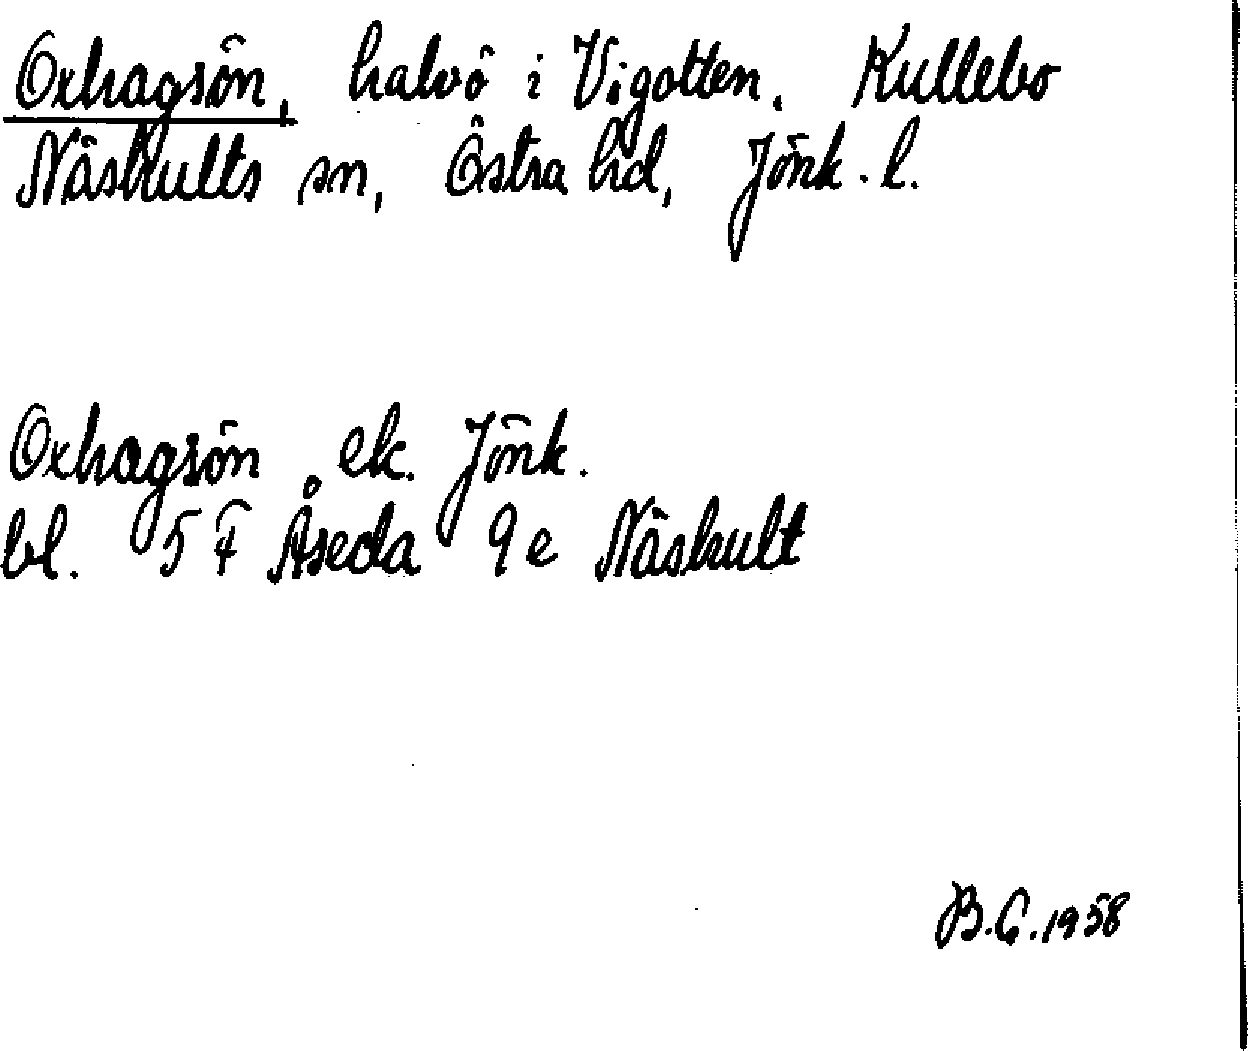 Oxhagsön, halvö i Vigotten, Kullebo
Näshults sn, Östra hd, Jönk. l.
Oxhagsön ek. Jönk.
bl. 5 F Åseda 9 e Näshult
B.G. 1958